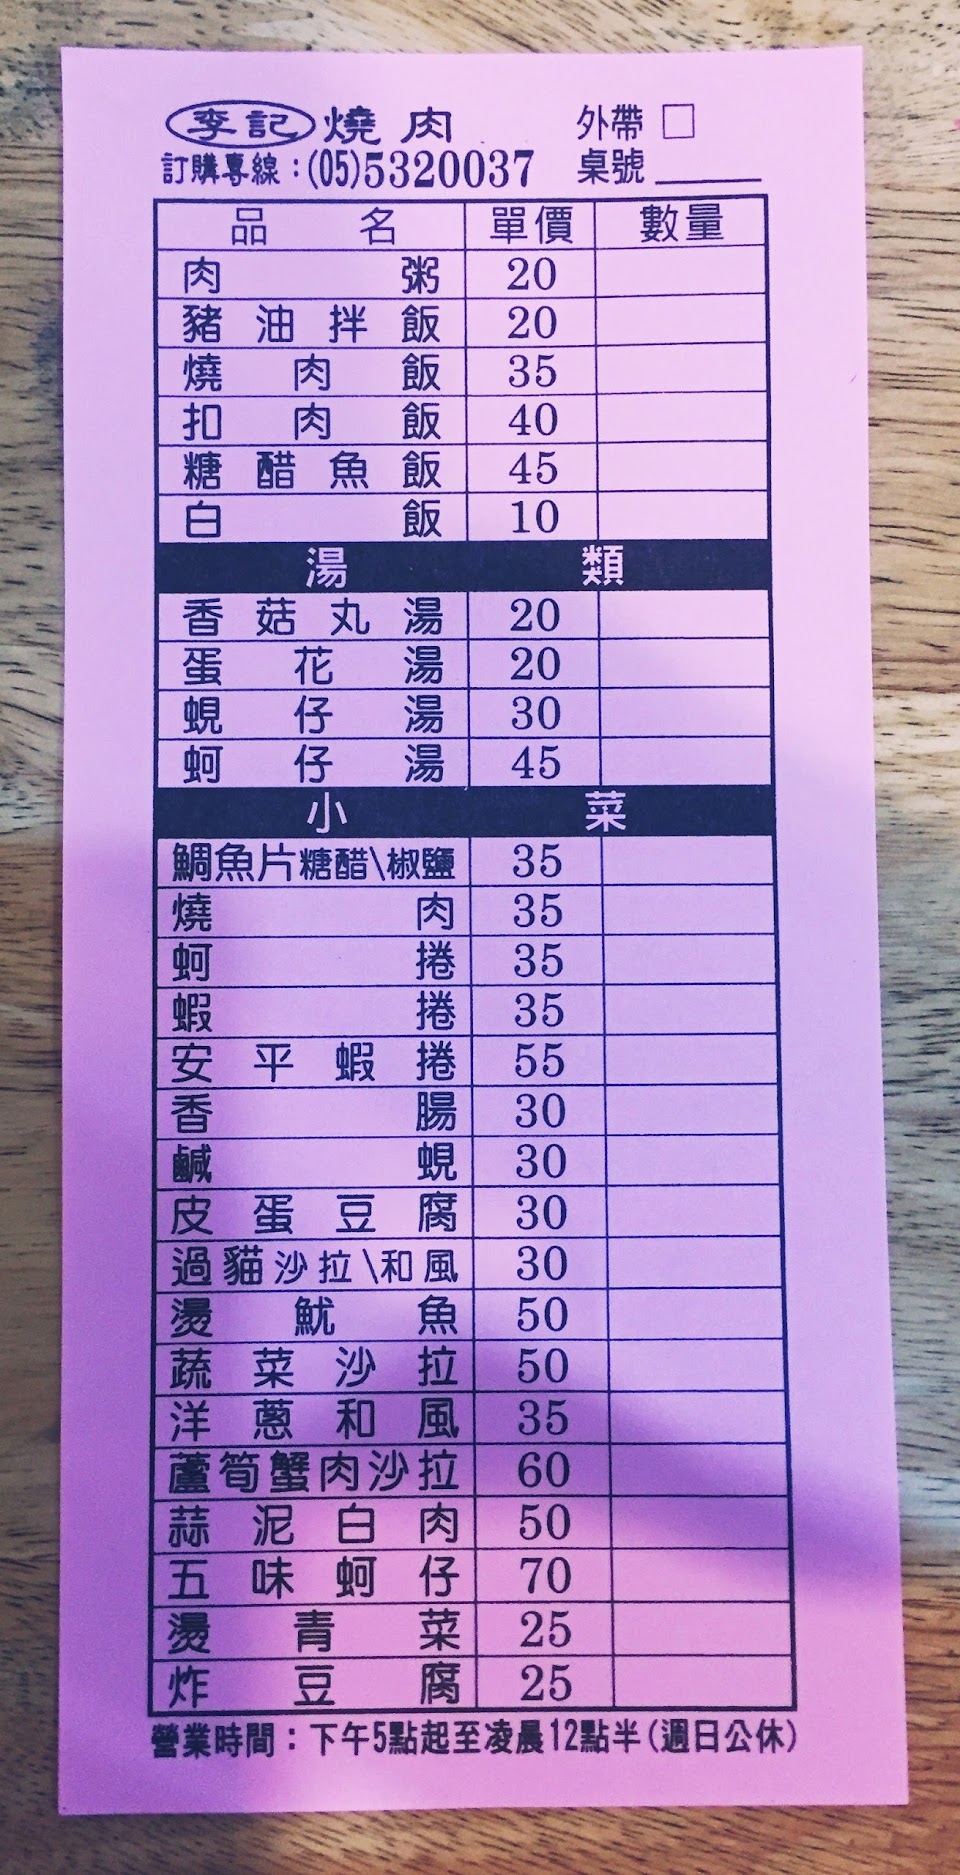 李記 燒肉 外帶 □
訂購專線：(05)5320037 桌號
品名 單價 數量
肉粥 20
豬油拌飯 20
燒肉飯 35
扣肉飯 40
糖醋魚飯 45
白飯 10
湯類
香菇丸湯 20
蛋花湯 20
蜆仔湯 30
蚵仔湯 45
小菜
鯛魚片糖醋\椒鹽 35
燒肉 35
蚵捲 35
蝦捲 35
安平蝦捲 55
香腸 30
鹹蜆 30
皮蛋豆腐 30
過貓沙拉\和風 30
燙魷魚 50
蔬菜沙拉 50
洋蔥和風 35
蘆筍蟹肉沙拉 60
蒜泥白肉 50
五味蚵仔 70
燙青菜 25
炸豆腐 25
營業時間：下午5點起至凌晨12點半(週日公休)